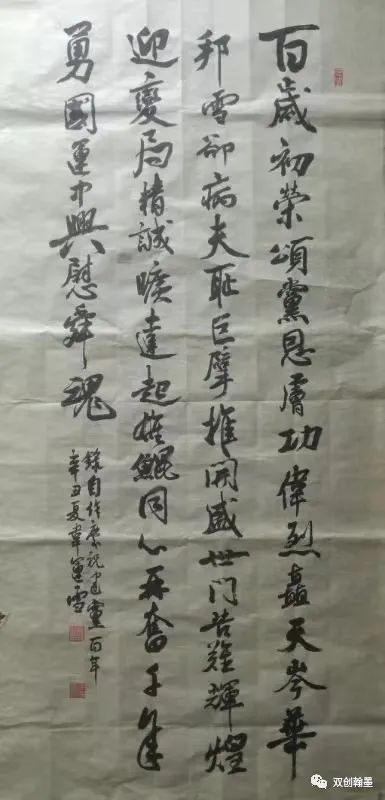 百歲初榮頌黨恩膚功偉烈矗天岑華
邦雪卻病夫耻巨擘推開盛世门苦難輝煌
迎變局精誠曠達起雄鲲同心再奮千年
勇國運中興慰舜魂
錄自作慶祝建黨一百年
辛丑夏韋運雪
双创翰墨